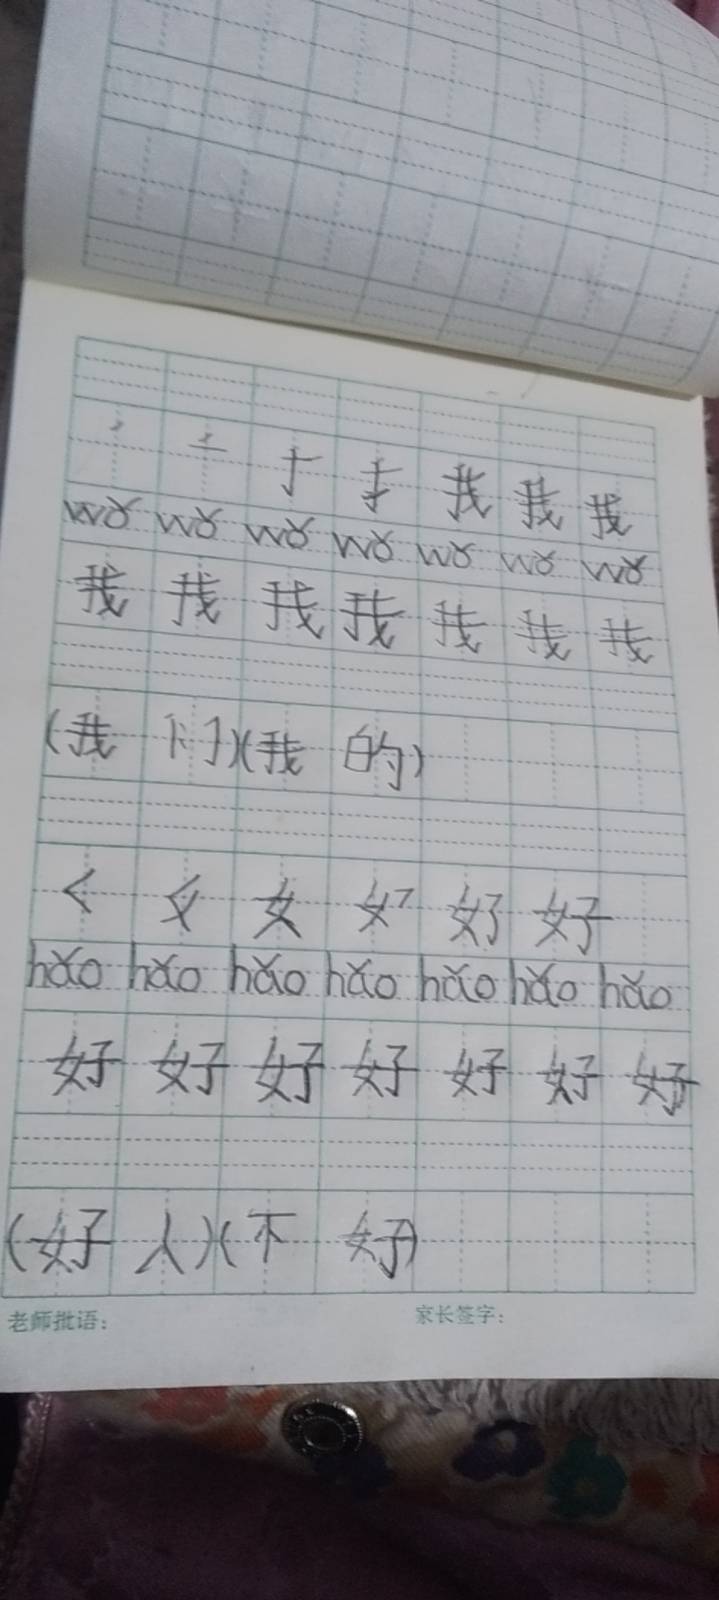 我 我 我
wǒ wǒ wǒ wǒ wǒ wǒ wǒ
我 我 我 我 我 我 我
(我 们)(我 的)
く 女 女 好 好
hǎo hǎo hǎo hǎo hǎo hǎo hǎo
好 好 好 好 好 好 好
(好 人)(不 好)
老师批语: 家长签字: